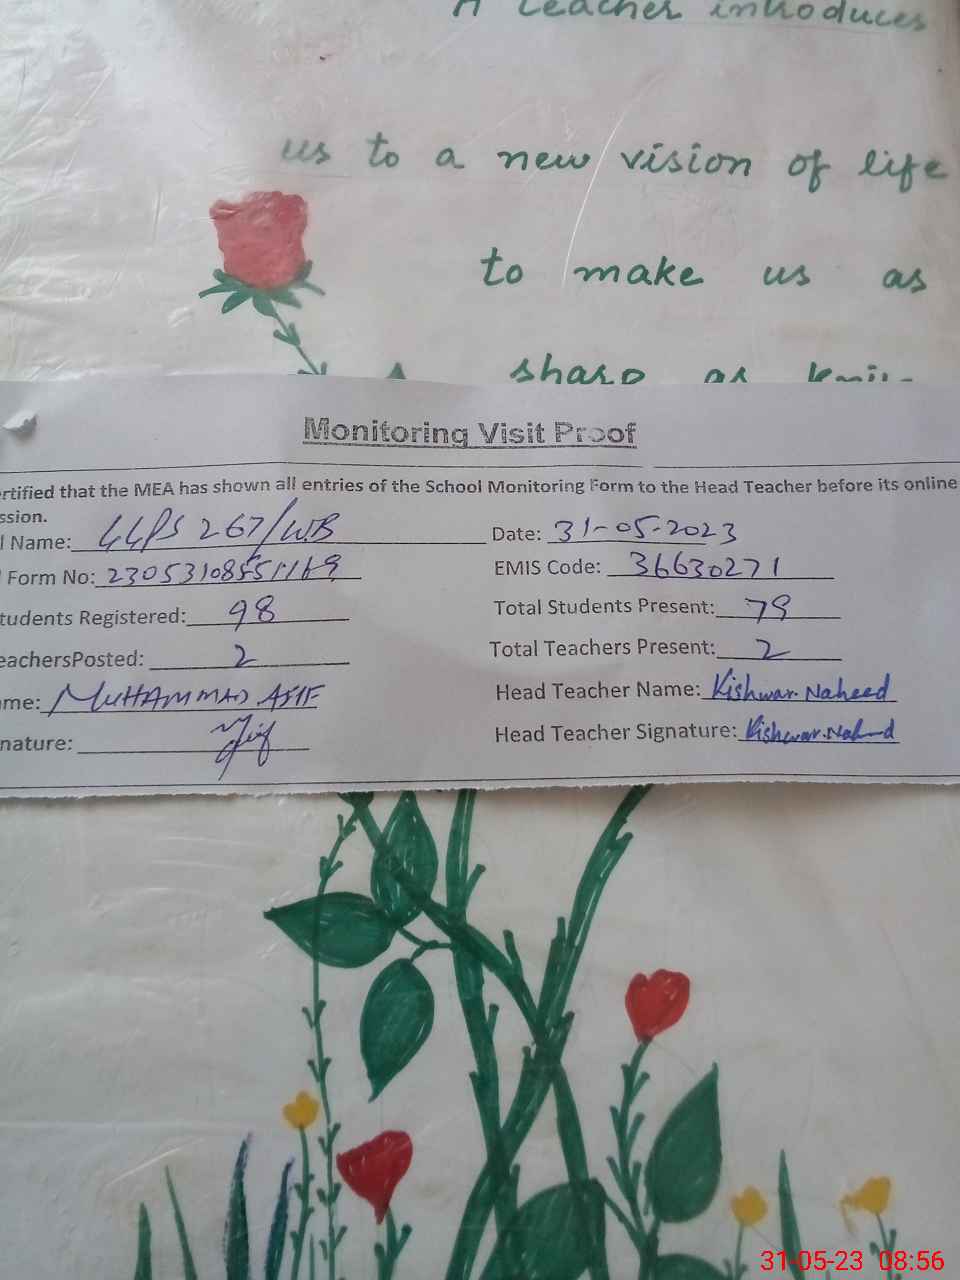 A teacher introduces
us to a new vision of life
to make us as
sharp as
Monitoring Visit Proof
ertified that the MEA has shown all entries of the School Monitoring Form to the Head Teacher before its online
ssion.
l Name: GGPS 267/W.B Date: 31-05-2023
Form No: EMIS Code: 36630271
tudents Registered: 98 Total Students Present: 79
eachersPosted: 2 Total Teachers Present: 2
me: MUHAMMAD ASIF Head Teacher Name: Kishwar Naheed
nature: Head Teacher Signature: Kishwar Naheed
31-05-23 08:56